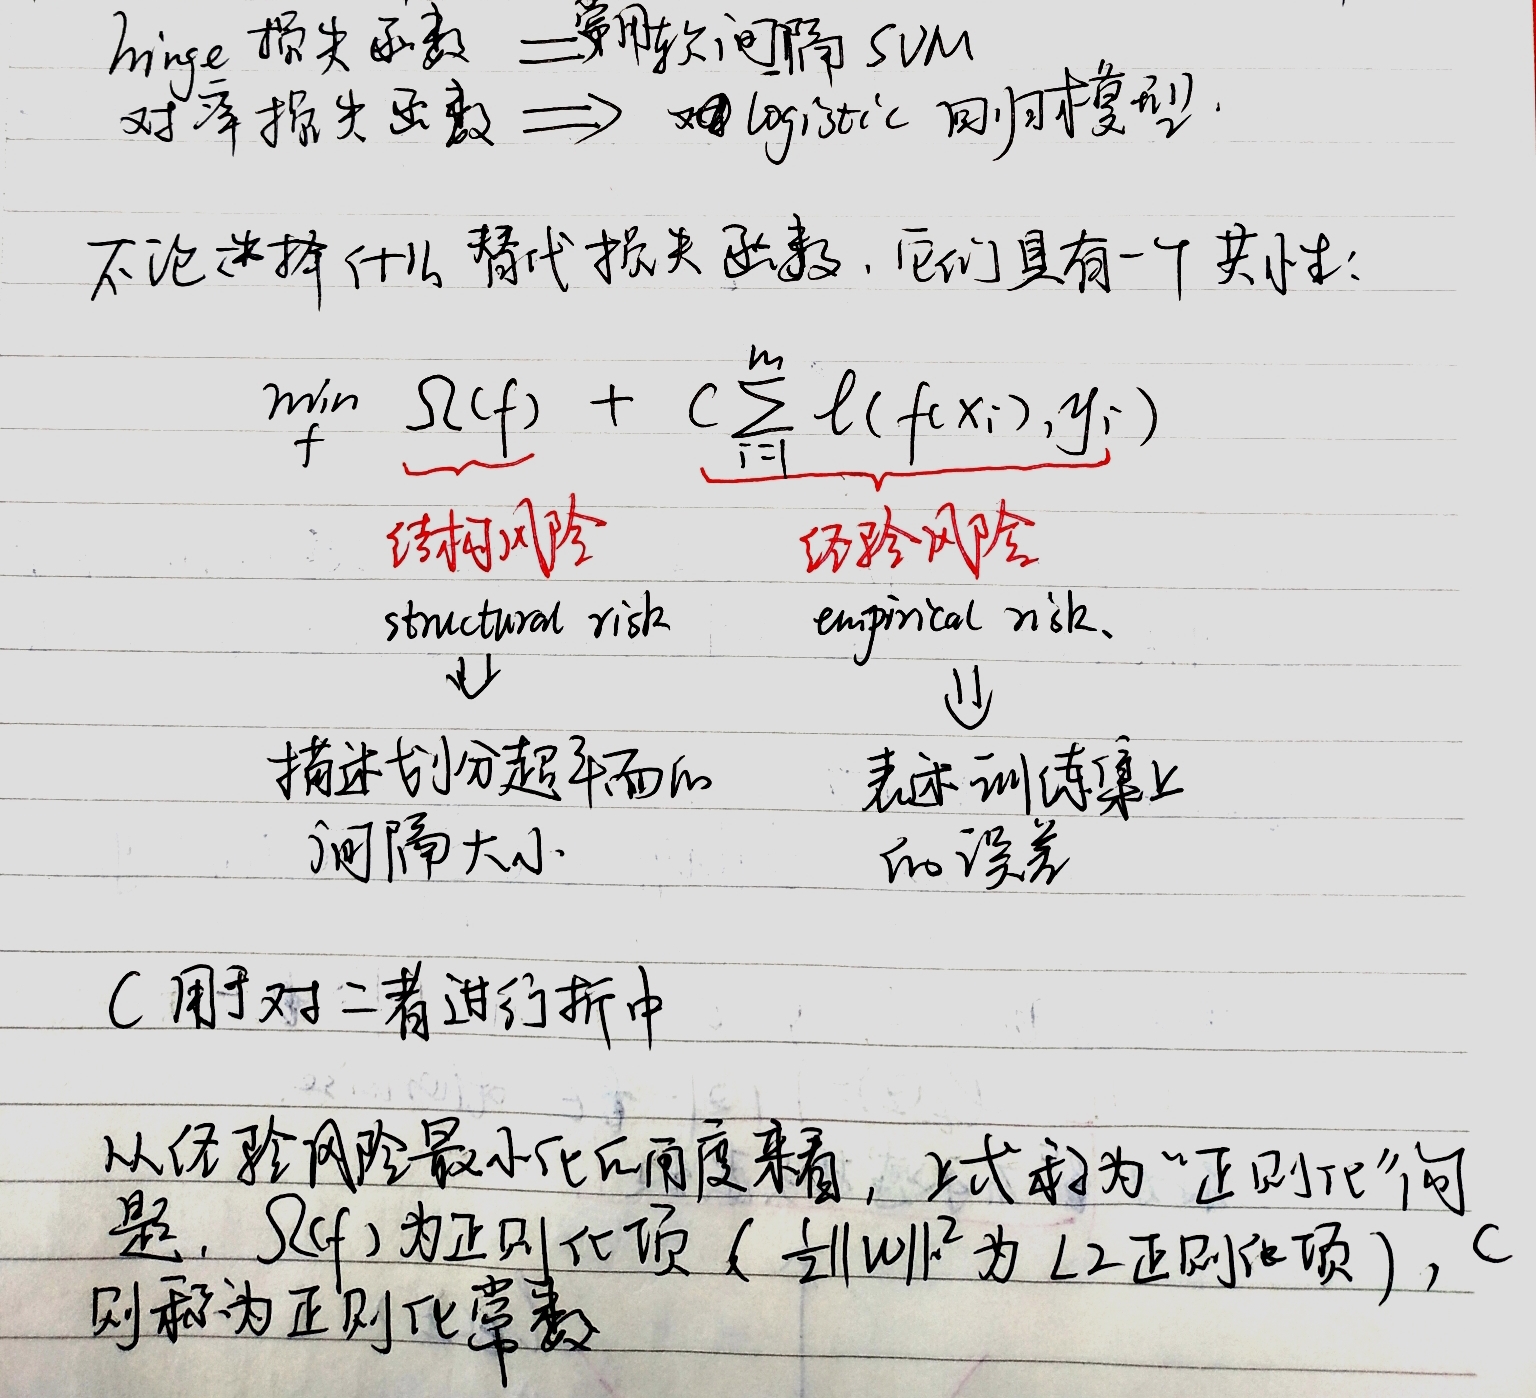 hinge 损失函数 ⇒ 常用软间隔 SVM
对率损失函数 ⇒ logistic 回归模型.
不论选择什么替代损失函数, 它们具有一个共性:
min_f Ω(f) + C ∑_{i=1}^{m} ℓ(f(xi), yi)
结构风险 经验风险
structural risk empirical risk、
⇓ ⇓
描述划分超平面的 表述训练集上
间隔大小. 的误差
C 用于对二者进行折中
从经验风险最小化的角度来看, 上式称为“正则化”问
题, Ω(f) 为正则化项 ( ½||w||² 为 L2正则化项 ) , C
则称为正则化常数